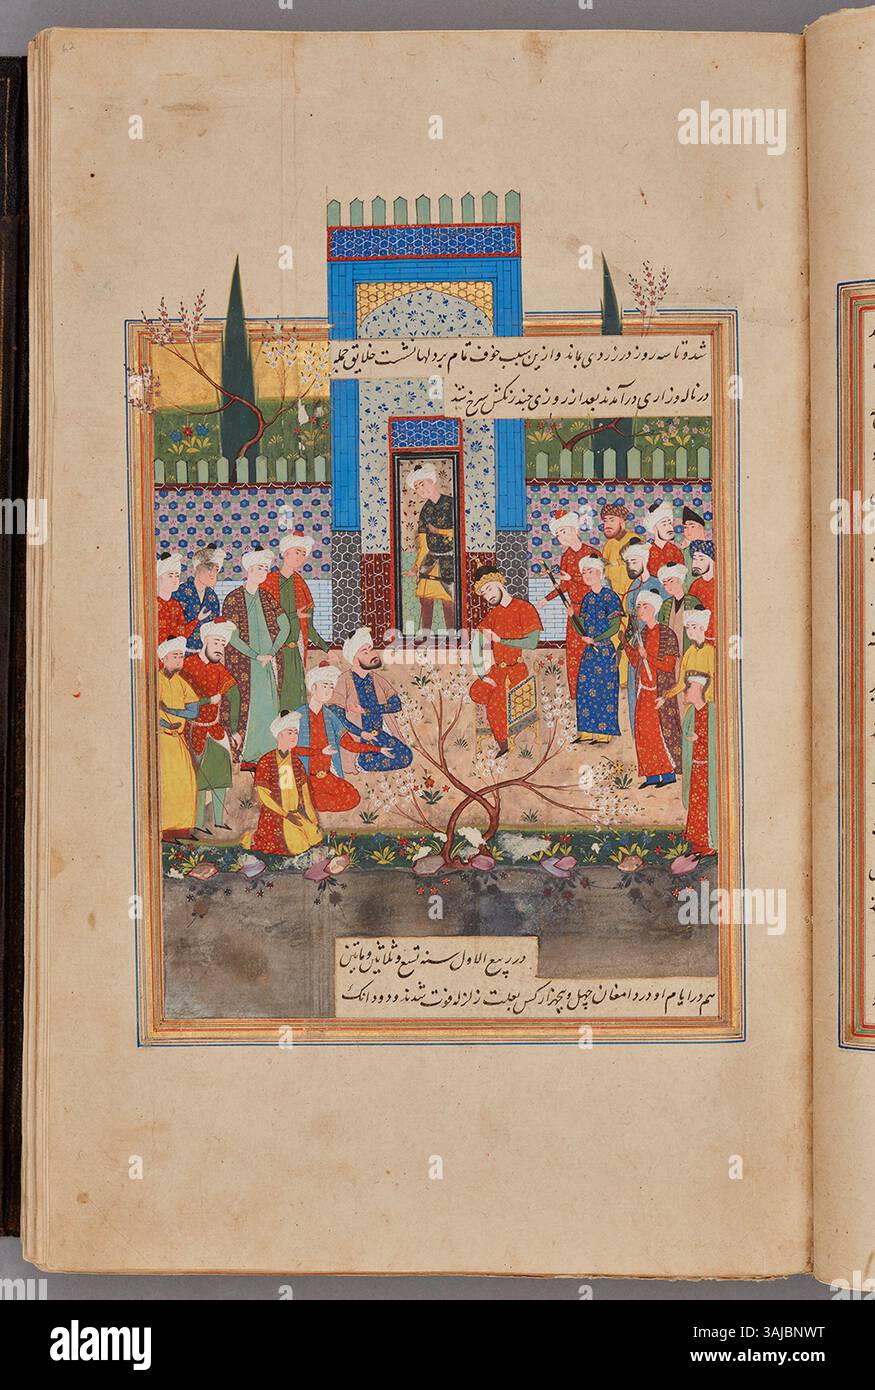 62
شد و تا سه روز در زردی بماند و ازین سبب خوف تمام بر دلها نشست خلایق جمله
در ناله و زاری درآمدند بعد از روزی چند رنگش سرخ شد
در ربیع الاول سنه تسع و ثلاثین و ماتین
هم در ایام او در دامغان چهل و پنجهزار کس بعلت زلزله فوت شدند و دو دانک
alamy
Image ID: 3AJBNWT
www.alamy.com